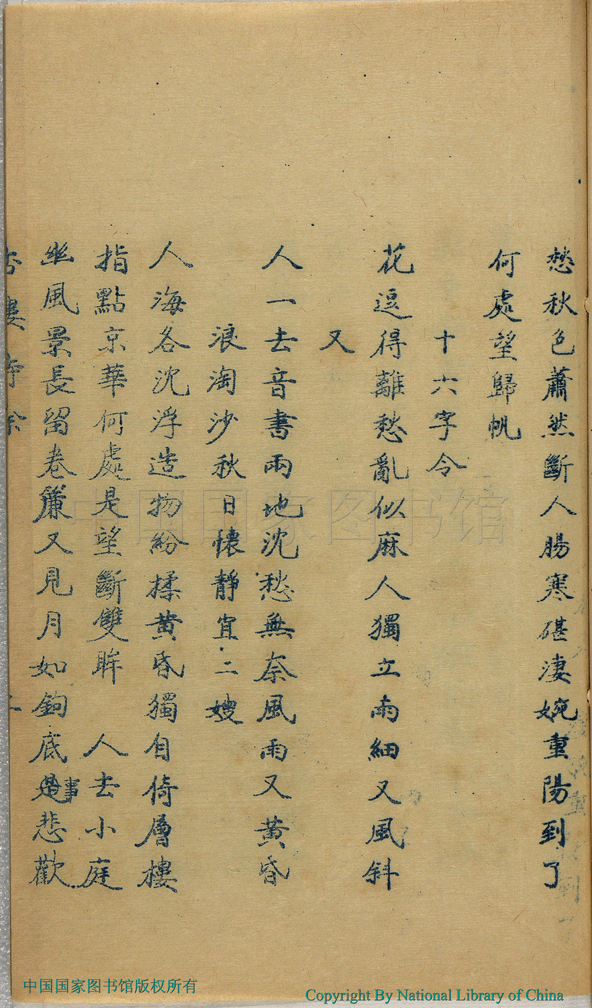 愁秋色蕭然斷人腸寒碪淒婉重陽到了
何處望歸帆
十六字令
花逗得離愁亂似麻人獨立雨細又風斜
又
人一去音書兩地沈愁無奈風雨又黃昏
浪淘沙秋日懷靜宜二嫂
人海各沈浮造物紛揉黃昏獨自倚層樓
指點京華何處是望斷雙眸 人去小庭
幽風景長留卷簾又見月如鉤底事是悲歡
中国国家图书馆
中国国家图书馆版权所有
Copyright By National Library of China